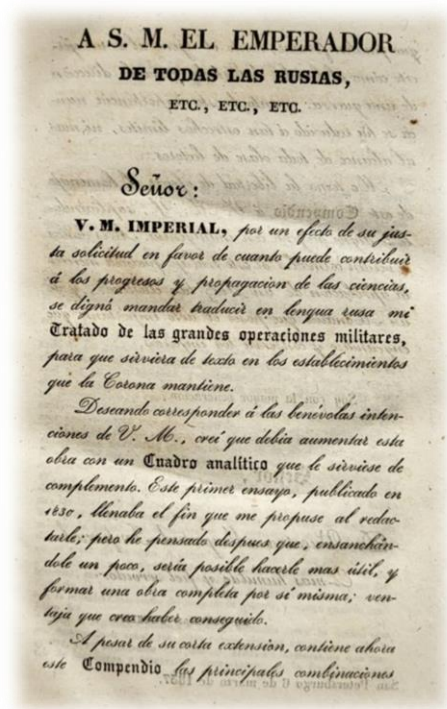 A S. M. EL EMPERADOR
DE TODAS LAS RUSIAS,
ETC., ETC., ETC.
Señor:
V. M. IMPERIAL, por un efecto de su jus-
ta solicitud en favor de cuanto puede contribuir
á los progresos y propagacion de las ciencias,
se dignó mandar traducir en lengua rusa mi
Tratado de las grandes operaciones militares,
para que sirviera de texto en los establecimientos
que la Corona mantiene.
Deseando corresponder á las benévolas inten-
ciones de V. M., creí que debia aumentar esta
obra con un Cuadro analítico que le sirviese de
complemento. Este primer ensayo, publicado en
1830, llenaba el fin que me propuse al redac-
tarle; pero he pensado despues que, ensanchán-
dole un poco, seria posible hacerle mas útil, y
formar una obra completa por sí misma; ven-
taja que creo haber conseguido.
A pesar de su corta extension, contiene ahora
este Compendio las principales combinaciones